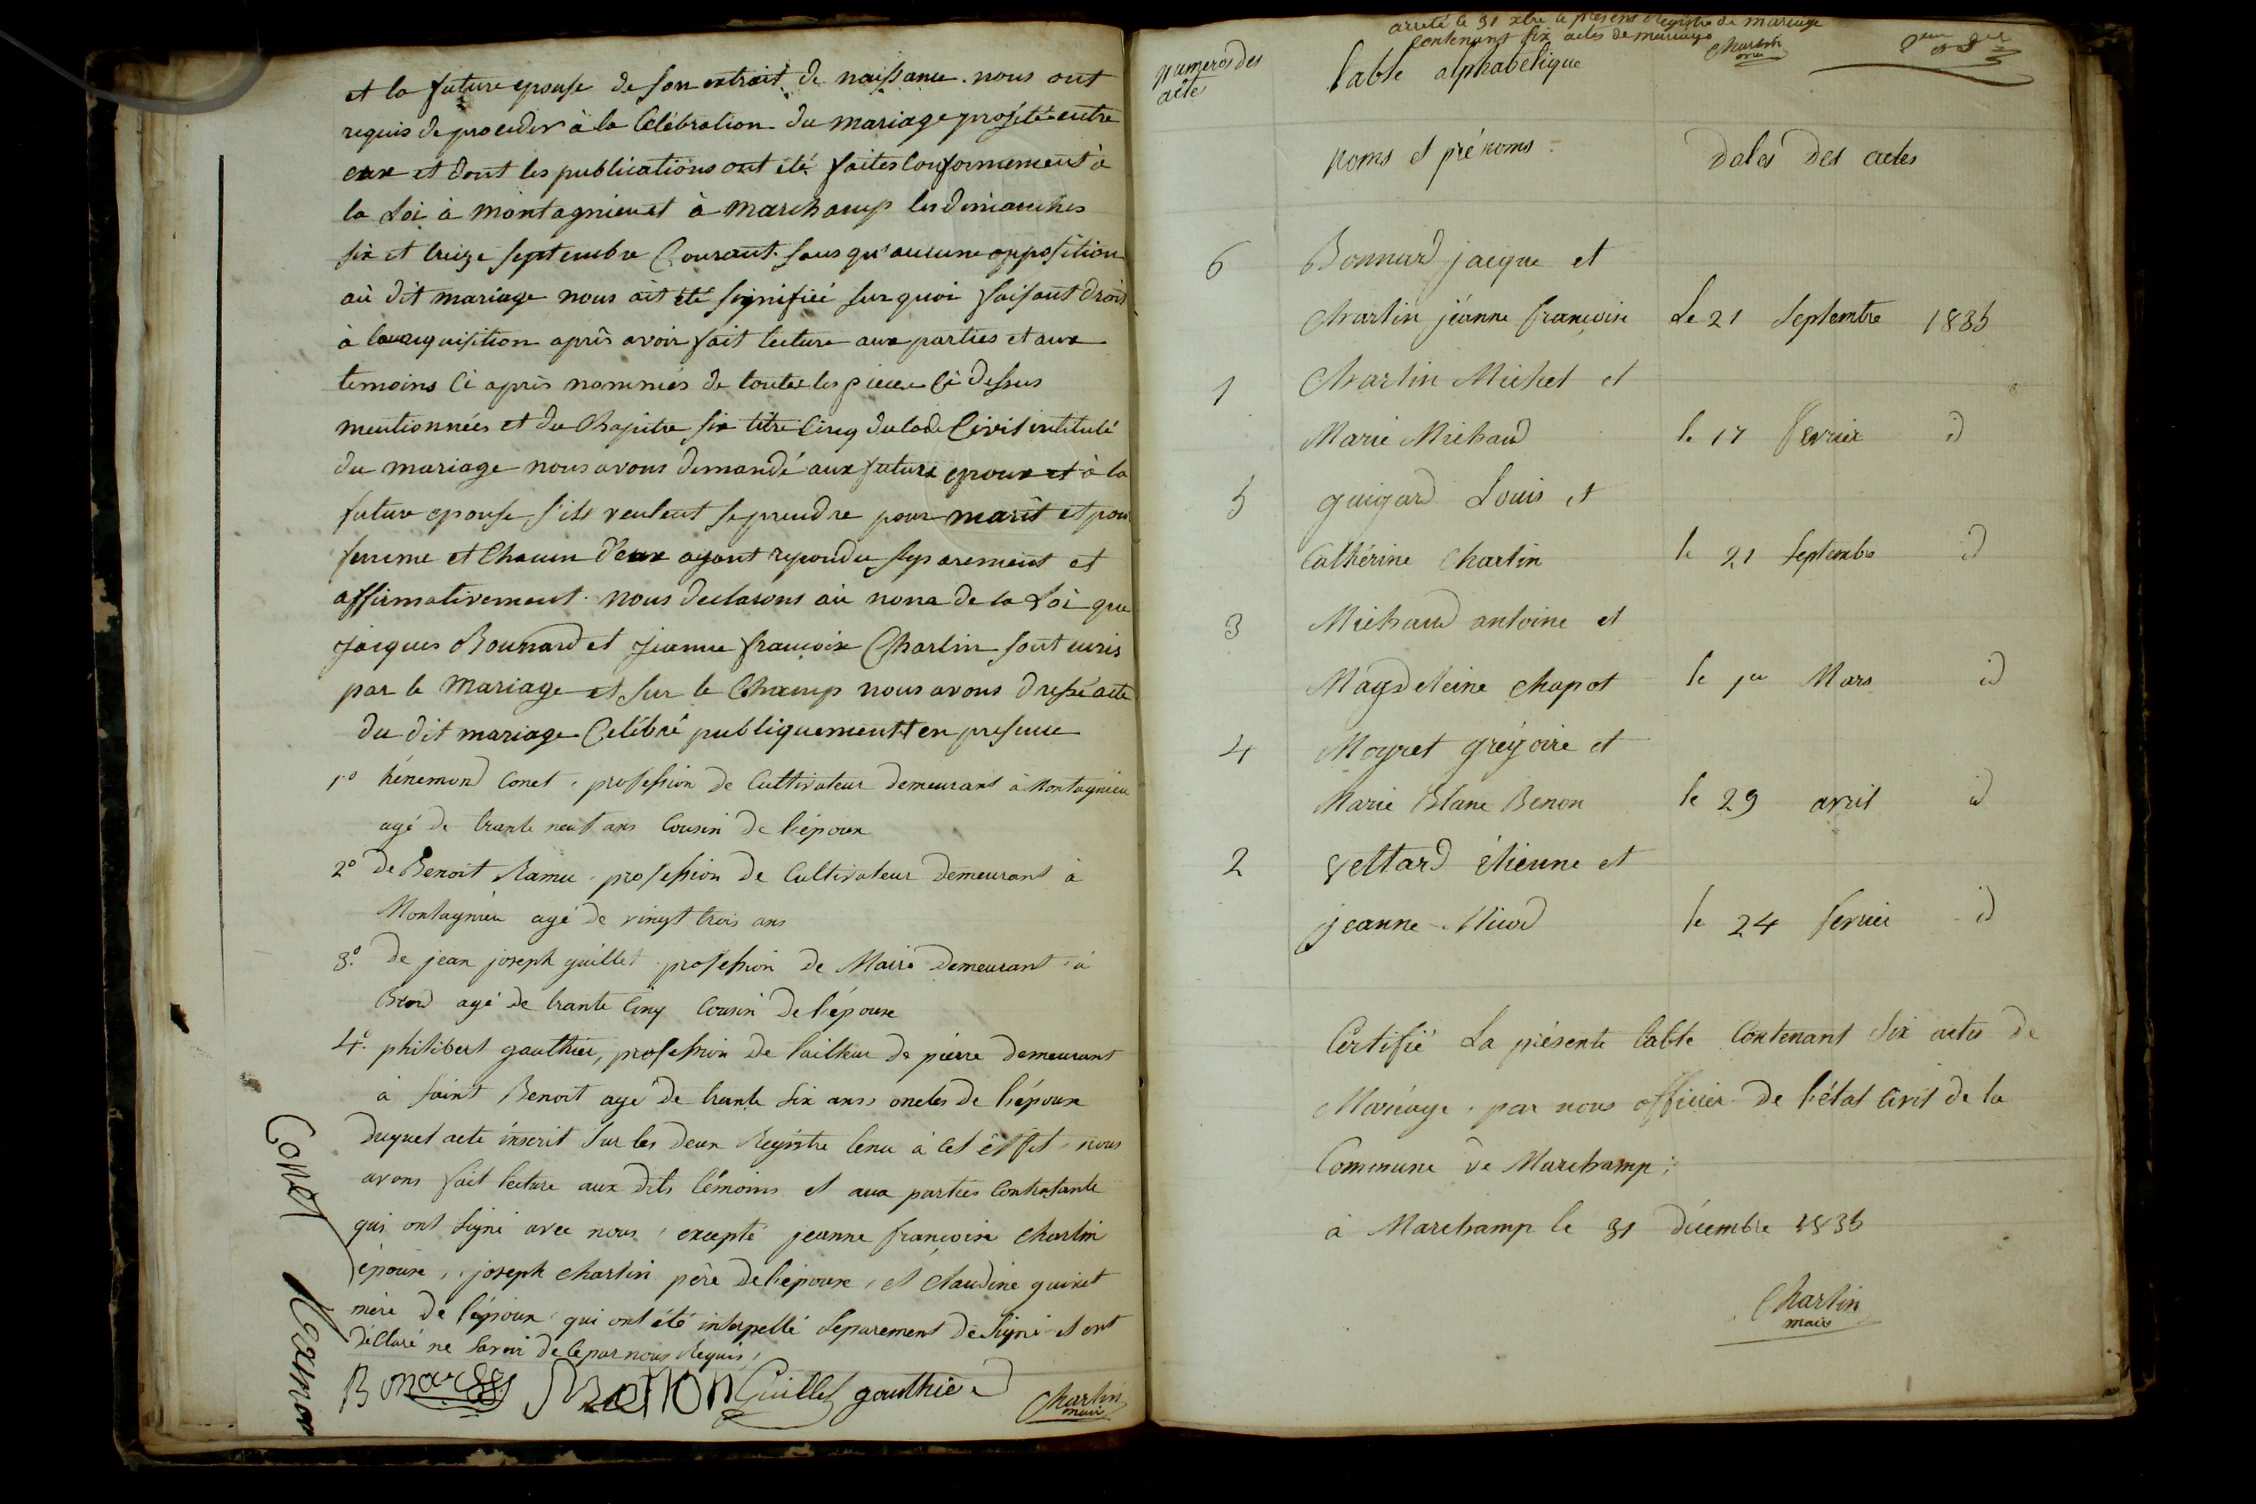 et la future epouse de son extrait de naissance. nous ont
requis de proceder à la Célébration du mariage projété entre
eux et dont les publications ont été faites Conformement à
la Loi à montagnieu et à marchamp les dimanches
six et treize septembre Courant. sans qu'aucune opposition
au dit mariage nous ait été signifiée sur quoi faisant droit
à la requisition après avoir fait lecture aux parties et aux
temoins Ci après nommés de toutes les pieces Ci dessus
mentionnées et du Chapitre six titre Cinq du Code Civil intitulé
du mariage nous avons demandé aux future epoux et à la
future epouse s'ils veulent se prendre pour marit et pour
femme et Chacun d'eux ayant repondu separement et
affirmativement. nous declarons au nom de la Loi que
jacques Bonnard et jeanne francoise Charlin sont unis
par le mariage et sur le Champ nous avons dressé acte
du dit mariage Célébré publiquement en presence
1º hénemond Conet, profession de Cultivateur demeurant à Montagnieu
agé de trante neuf ans Cousin de l'époux
2º de Benoit Ramu, profession de Cultivateur demeurant à
Montagnieu agé de vingt trois ans
3º. de jean joseph guillet profession de Maire demeurant à
Brord agé de trante Cinq Cousin de l'épouse
4º. philibert gauthier, profession de tailleur de pierre demeurant
à saint Benoit agé de trante six ans oncles de l'épouse
duquel acte inscrit sur les deux Régistre tenu à cet éffet, nous
avons fait lecture aux dits témoins et aux parties Contratante
qui ont signé avec nous, excepté jeanne francoise charlin
épouse, joseph charlin père de l'épouse, et claudine guinet
mère de l'époux qui ont été interpellé separement de signé et ont
déclaré ne savoir de ce par nous Réquis,
Conet
Bonard guillet gauthier Charlin
maire
arrété le 31 xbre le présent Régistre de mariage
Contenant six actes de mariage
Charlin
maire
numeros des
acte
table alphabétique
noms et prénoms
dates des actes
6 Bonnard jacque et
Charlin jéanne francoise Le 21 septembre 1835
1 Charlin Michel et
Marie Michaud le 17 fevrier id
5 guigard Louis et
Cathérine Charlin le 21 septembre id
3 Michaud antoine et
Magdeleine chapot le 1er Mars id
4 Moyret grégoire et
Marie Blanc Benon le 29 avril id
2 vettard étienne et
jeanne Nicod le 24 fevrier id
Certifié La présente table Contenant six actes de
Mariéage, par nous officier de l'état civil de la
Commune de Marchamp;
à Marchamp le 31 décembre 1835
Charlin
maire